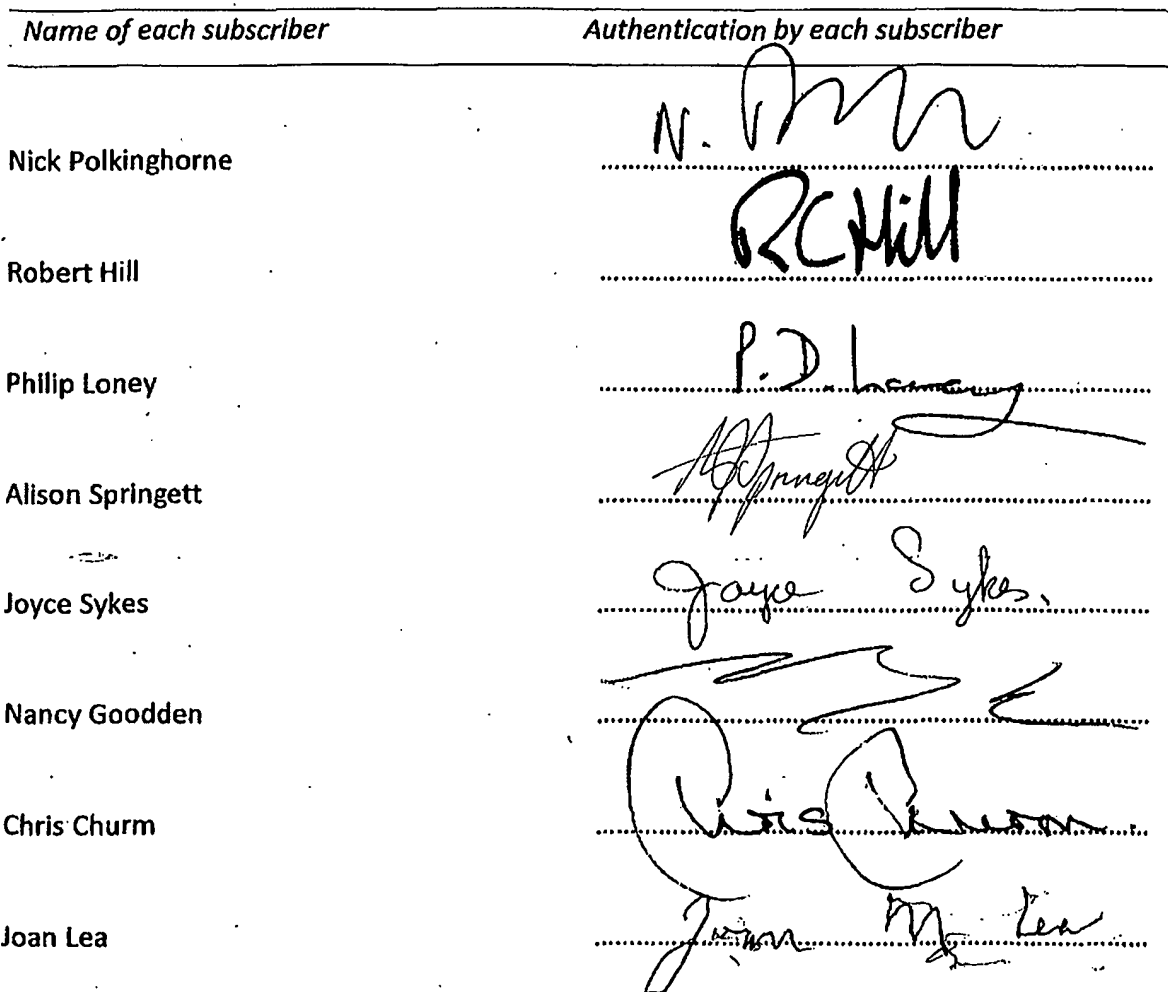 Name of each subscriber Authentication by each subscriber
Nick Polkinghorne N.
Robert Hill RCHill
Philip Loney P.D. Loney
Alison Springett Springett
Joyce Sykes Joyce Sykes.
Nancy Goodden
Chris Churm Chris Churm.
Joan Lea Joan M Lea